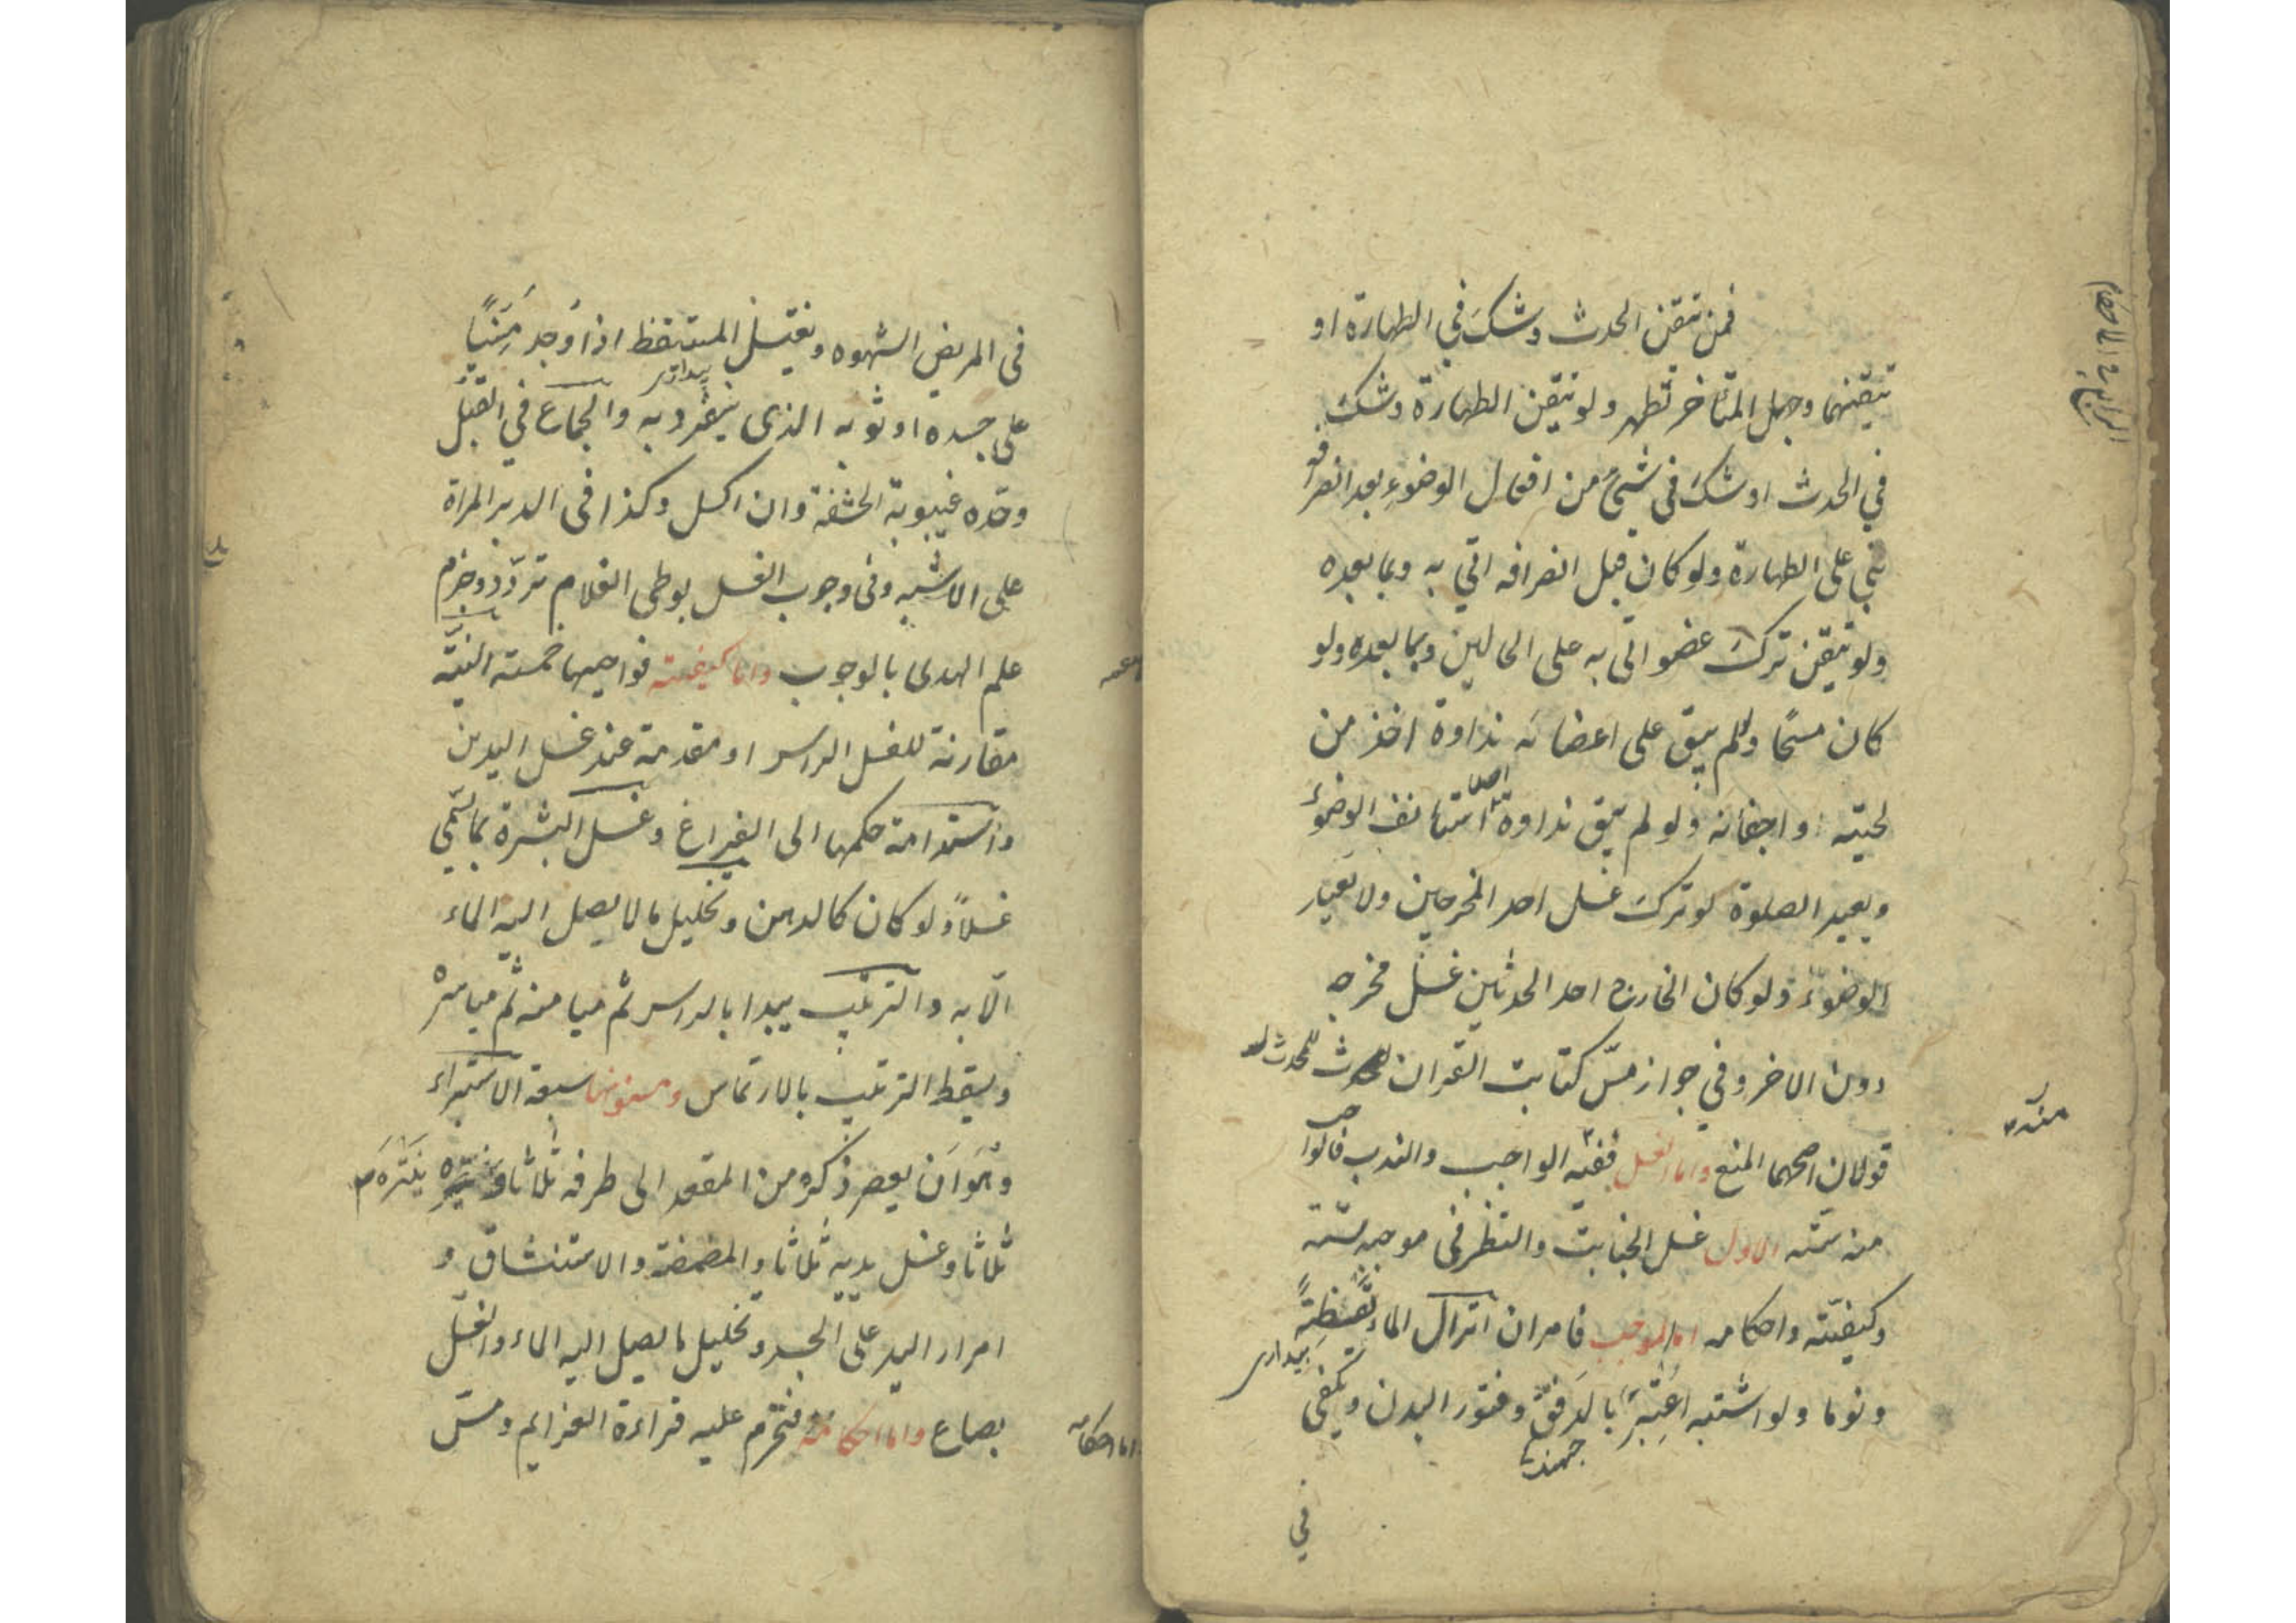 فمن تيقن الحدث وشك في الطهارة او
تيقنهما وجهل المتاخر تطهر ولو تيقن الطهارة وشك
في الحدث او شك في شيء من افعال الوضوء بعد انصرافه
بنى على الطهارة ولو كان قبل انصرافه اتى به وبما بعده
ولو تيقن ترك عضو اتى به على الحالين وبما بعده ولو
كان مسحًا ولم يبق على اعضائه نداوة اخذ من
لحيته واجفانه ولو لم يبق نداوة استانف الوضوء
ويعيد الصلوة لو ترك غسل احد المخرجين ولا يعيد
الوضوء ولو كان الخارج احد الحدثين غسل مخرجه
دون الاخر وفي جواز مسّ كتابت القران للمحدث
قولان اصحهما المنع واما الغسل ففيه الواجب والندب فالواجب
منه ستته الاول غسل الجنابت والنظر في موجبه
وكيفيّته واحكامه اما الموجب فامران انزال الماء يقظةً
بيدارى
ونوما ولو اشتبه اعتبر بالدفق وفتور البدن ويكفى
جهند
في
في المريض الشهوه ويغتسل المستيقظ اذا وجد منيًا
بيدارى
على جسده او ثوبه الذى ينفرد به والجماع في القبل
وحدّه غيبوبة الحشفة وان اكسل وكذا فى الدبر المراة
على الاشبه وفى وجوب الغسل بوطى الغلام تردّد وجزم
علم الهدى بالوجوب واما كيفيته فواجبها خمسته النيّة
مقارنة للغسل الراس او مقدمة عند غسل اليدين
واستدامة حكمها الى الفراغ وغسل البشرة بما يسمّى
غسلاً ولو كان كالدهن وتخليل ما لا يصل اليه الماء
الّا به والترتيب يبدا بالراس ثم ميامنه ثم مياسره
ويسقط الترتيب بالارتماس ومسنونها سبعة الاستبراء
وهو ان يعصر ذكره من المقعد الى طرفه ثلاثا وينتره
ثلاثا وغسل يديه ثلاثا والمضمضة والاستنشاق و
امرار اليد على الجسد وتخليل ما يصل اليه الماء والغسل
بصاع واما احكامه فتحرم عليه قراءة العزايم ومسّ
اما احكامه